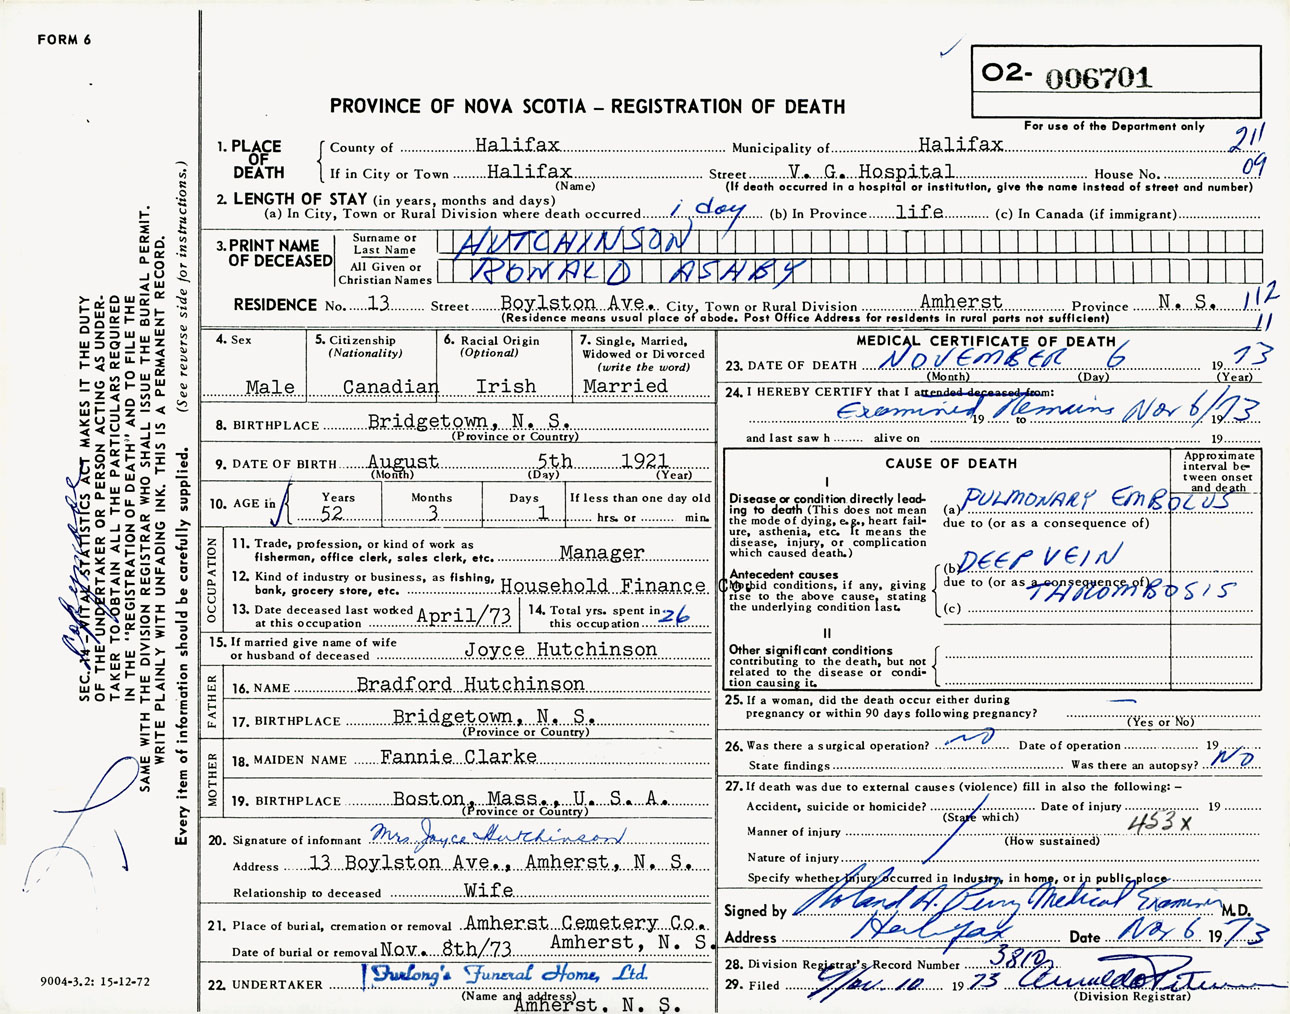 FORM 6
O2- 006701
PROVINCE OF NOVA SCOTIA – REGISTRATION OF DEATH
For use of the Department only
1. PLACE OF DEATH
County of Halifax Municipality of Halifax 211
If in City or Town Halifax Street V. G. Hospital House No. 09
(Name) (If death occurred in a hospital or institution, give the name instead of street and number)
2. LENGTH OF STAY (in years, months and days)
(a) In City, Town or Rural Division where death occurred 1 day (b) In Province life (c) In Canada (if immigrant)
3. PRINT NAME OF DECEASED
Surname or Last Name HUTCHINSON
All Given or Christian Names RONALD ASHBY
RESIDENCE No. 13 Street Boylston Ave. City, Town or Rural Division Amherst Province N. S. 112
(Residence means usual place of abode. Post Office Address for residents in rural parts not sufficient) 11
4. Sex
Male
5. Citizenship (Nationality)
Canadian
6. Racial Origin (Optional)
Irish
7. Single, Married, Widowed or Divorced (write the word)
Married
8. BIRTHPLACE Bridgetown, N. S.
(Province or Country)
9. DATE OF BIRTH August 5th 1921
(Month) (Day) (Year)
10. AGE in Years Months Days If less than one day old
52 3 1 hrs. or min.
OCCUPATION
11. Trade, profession, or kind of work as fisherman, office clerk, sales clerk, etc. Manager
12. Kind of industry or business, as fishing, bank, grocery store, etc. Household Finance Co.
13. Date deceased last worked at this occupation April/73
14. Total yrs. spent in this occupation 26
15. If married give name of wife or husband of deceased Joyce Hutchinson
FATHER
16. NAME Bradford Hutchinson
17. BIRTHPLACE Bridgetown, N. S.
(Province or Country)
MOTHER
18. MAIDEN NAME Fannie Clarke
19. BIRTHPLACE Boston, Mass., U. S. A.
(Province or Country)
20. Signature of informant Mrs. Joyce Hutchinson
Address 13 Boylston Ave., Amherst, N. S.
Relationship to deceased Wife
21. Place of burial, cremation or removal Amherst Cemetery Co.
Date of burial or removal Nov. 8th/73 Amherst, N. S.
22. UNDERTAKER Furlong's Funeral Home, Ltd.
(Name and address)
Amherst, N. S.
MEDICAL CERTIFICATE OF DEATH
23. DATE OF DEATH NOVEMBER 6 19 73
(Month) (Day) (Year)
24. I HEREBY CERTIFY that I attended deceased from:
Examined Remains Nov 6/73
19 to 19
and last saw h alive on 19
CAUSE OF DEATH
Approximate interval between onset and death
I
Disease or condition directly leading to death (This does not mean the mode of dying, e.g., heart failure, asthenia, etc. It means the disease, injury, or complication which caused death.)
(a) PULMONARY EMBOLUS
due to (or as a consequence of)
Antecedent causes
Morbid conditions, if any, giving rise to the above cause, stating the underlying condition last.
(b) DEEP VEIN
due to (or as a consequence of)
THROMBOSIS
(c)
II
Other significant conditions contributing to the death, but not related to the disease or condition causing it.
25. If a woman, did the death occur either during pregnancy or within 90 days following pregnancy? —
(Yes or No)
26. Was there a surgical operation? no Date of operation 19
State findings Was there an autopsy? NO
27. If death was due to external causes (violence) fill in also the following: –
Accident, suicide or homicide? Date of injury 19
(State which) 453X
Manner of injury
(How sustained)
Nature of injury
Specify whether injury occurred in industry, in home, or in public place
Signed by Roland A. Perry Medical Examiner M.D.
Address Halifax Date Nov 6 19 73
28. Division Registrar's Record Number
29. Filed Nov. 10 19 73
(Division Registrar)
SEC. 14 – VITAL STATISTICS ACT MAKES IT THE DUTY
OF THE UNDERTAKER OR PERSON ACTING AS UNDER-
TAKER TO OBTAIN ALL THE PARTICULARS REQUIRED
IN THE "REGISTRATION OF DEATH" AND TO FILE THE
SAME WITH THE DIVISION REGISTRAR WHO SHALL ISSUE THE BURIAL PERMIT.
WRITE PLAINLY WITH UNFADING INK. THIS IS A PERMANENT RECORD.
Every item of information should be carefully supplied. (See reverse side for instructions.)
9004-3.2: 15-12-72